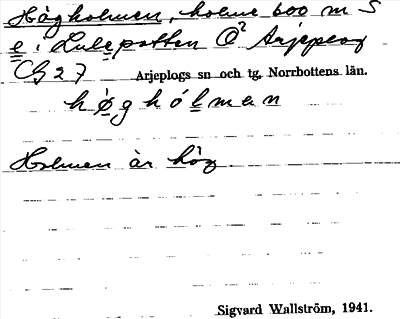 Högholmen, holme 600 m S
e. Luleputten O² Arjeplog
Cg 27 Arjeplogs sn och tg, Norrbottens län.
høghólman
Holmen är hög
Sigvard Wallström, 1941.